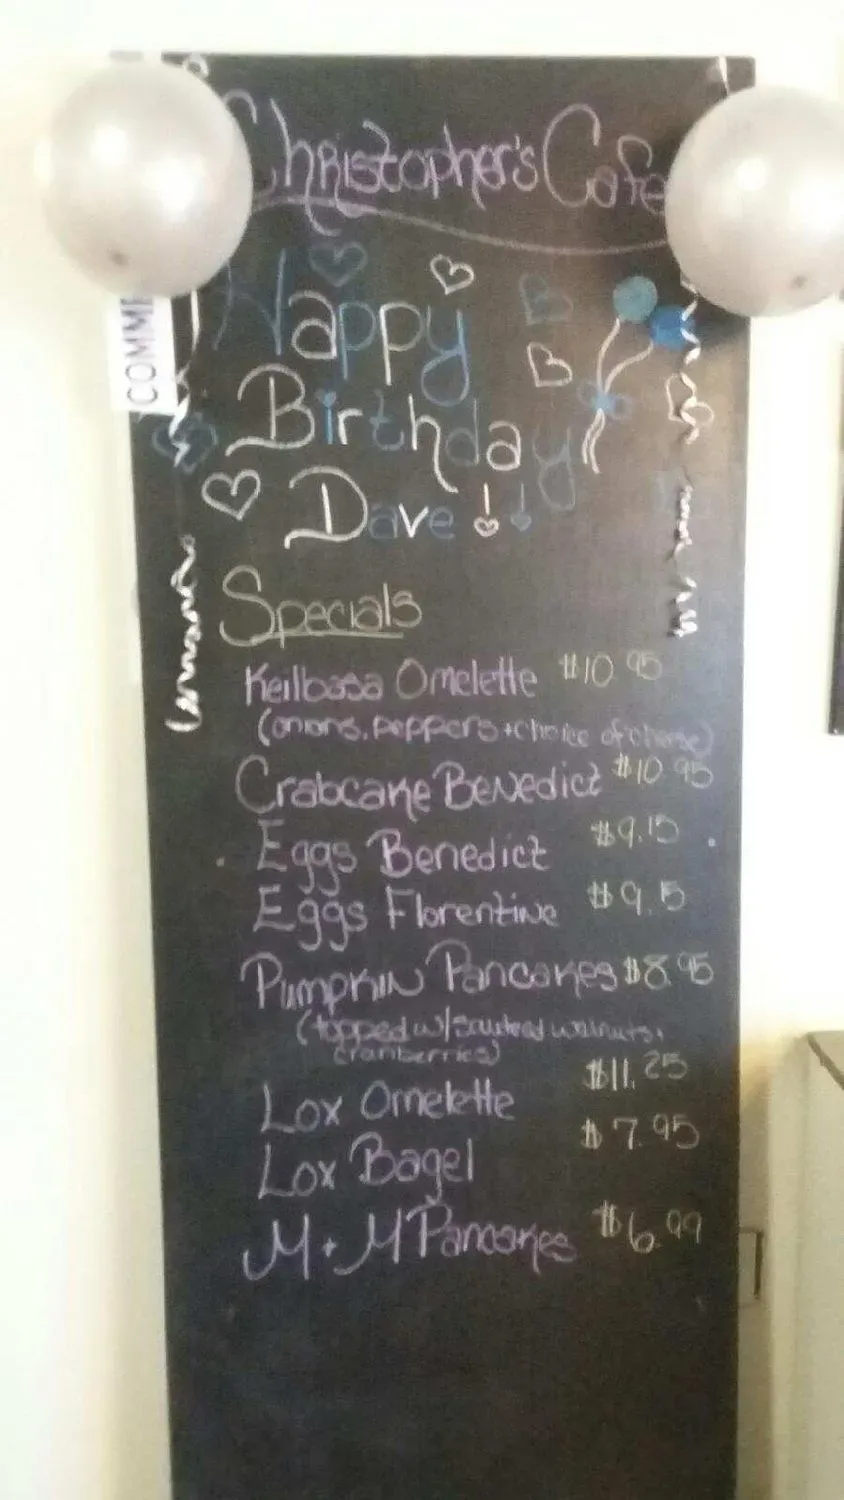 Christopher's Cafe
Happy
COMME
Birthday
Dave !!
Specials
Keilbasa Omelette $10.95
(onions, peppers + choice of cheese)
Crabcake Benedict $10.95
Eggs Benedict $9.15
Eggs Florentine $9.15
Pumpkin Pancakes $8.95
(topped w/ sauteed walnuts,
cranberries)
Lox Omelette $11.25
Lox Bagel $7.95
M+M Pancakes $6.99